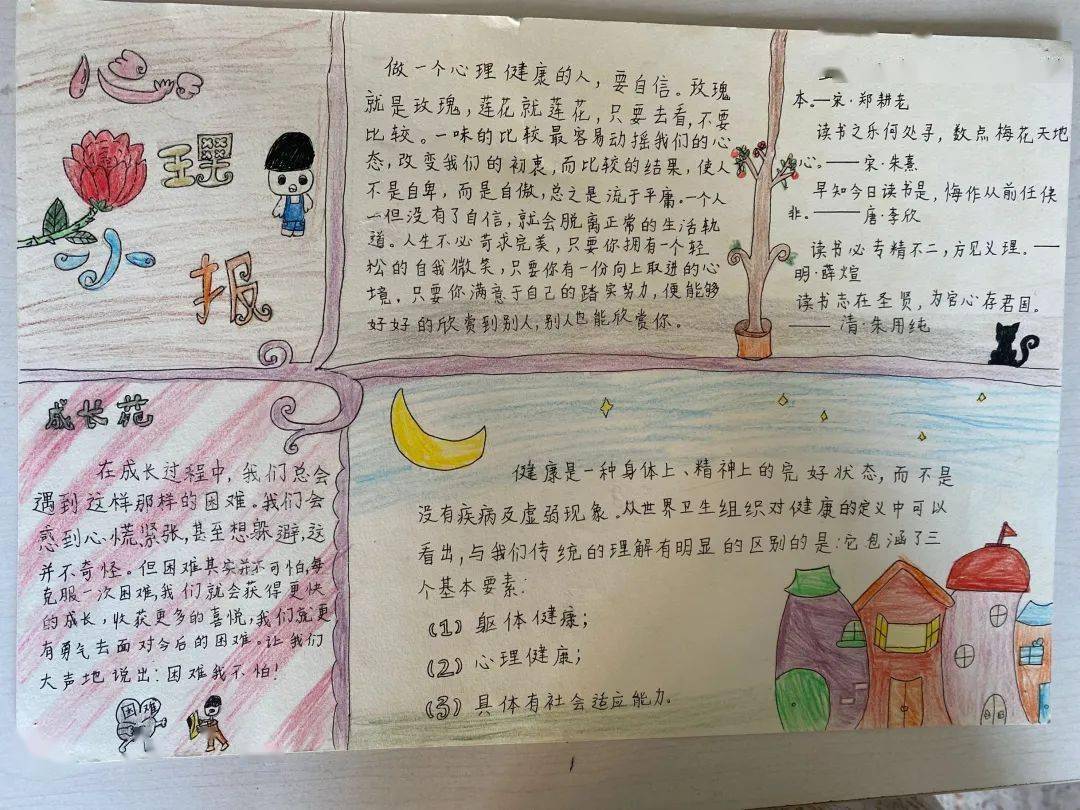 心理
小报
做一个心理健康的人，要自信。玫瑰
就是玫瑰，莲花就莲花，只要去看，不要
比较。一味的比较最容易动摇我们的心
态，改变我们的初衷，而比较的结果，使人
不是自卑，而是自傲，总之是流于平庸。一个人
一但没有了自信，就会脱离正常的生活轨
道。人生不必苛求完美，只要你拥有一个轻
松的自我微笑，只要你有一份向上取进的心
境。只要你满意于自己的踏实努力，便能够
好好的欣赏到别人，别人也能欣赏你。
本。—宋·郑耕老
读书之乐何处寻，数点梅花天地
心。——宋·朱熹
早知今日读书是，悔作从前任侠
非。——唐·李欣
读书必专精不二，方见义理。——
明·薛煊
读书志在圣贤，为官心存君国。
——清：朱用纯
成长苑
在成长过程中，我们总会
遇到这样那样的困难。我们会
感到心慌紧张，甚至想躲避，这
并不奇怪。但困难其实并不可怕，每
克服一次困难，我们就会获得更快
的成长，收获更多的喜悦，我们就更
有勇气去面对今后的困难。让我们
大声地说出：困难我不怕！
困难
健康是一种身体上、精神上的完好状态，而不是
没有疾病及虚弱现象。从世界卫生组织对健康的定义中可以
看出，与我们传统的理解有明显的区别的是：它包涵了三
个基本要素：
（1）躯体健康；
（2）心理健康；
（3）具体有社会适应能力。